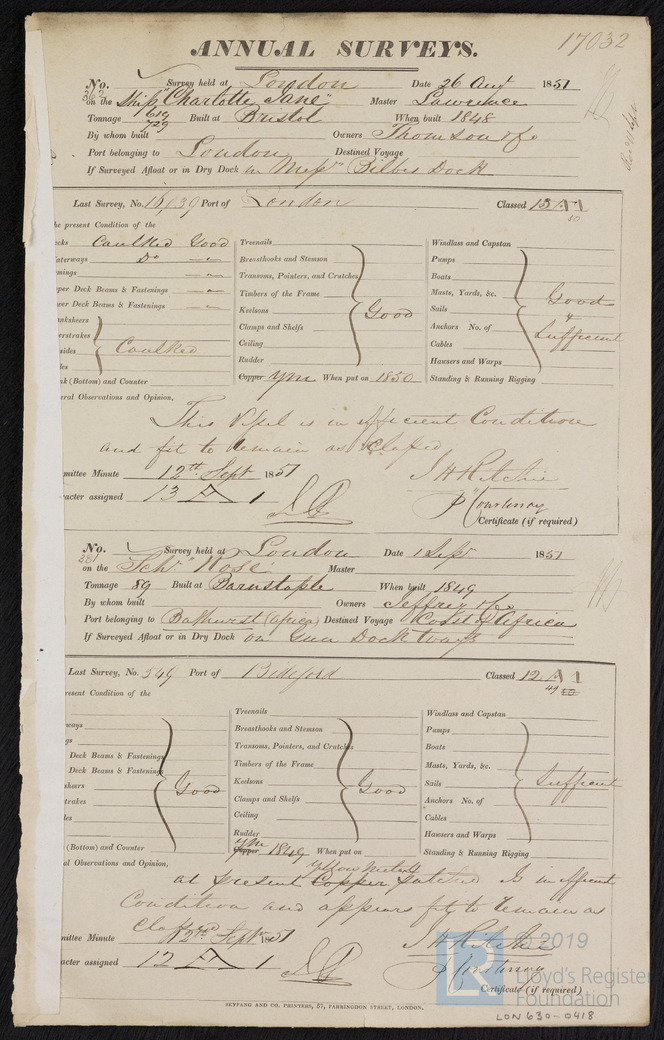 17032
ANNUAL SURVEYS.
No. 362 Survey held at London Date 26 Augt 1851
on the Ship "Charlotte Jane" Master Lawrence
Tonnage 619 729 Built at Bristol When built 1848
By whom built Owners Thomson & Co
Port belonging to London Destined Voyage
If Surveyed Afloat or in Dry Dock in Messrs Bilbes Dock
Last Survey, No. 16,039 Port of London Classed 13 A1
he present Condition of the
ecks Caulked Good
aterways Do
mings
per Deck Beams & Fastenings
wer Deck Beams & Fastenings
anksheers
perstrakes
sides
les
Caulked
nk (Bottom) and Counter
Treenails
Breasthooks and Stemson
Transoms, Pointers, and Crutches
Timbers of the Frame
Keelsons
Clamps and Shelfs
Ceiling
Rudder
Good
Copper YM When put on 1850
Windlass and Capstan
Pumps
Boats
Masts, Yards, &c.
Sails
Anchors No. of
Cables
Hawsers and Warps
Standing & Running Rigging
Good & Sufficient
eral Observations and Opinion,
This Vessel is in efficient Condition
and fit to remain as Classed
mmittee Minute 12th Sept 1851
racter assigned 13 A 1
J H Ritchie
P Courtenay
Certificate (if required)
No. 381 Survey held at London Date 1 Sept 1851
on the Schr "Rose" Master
Tonnage 89 Built at Barnstaple When built 1849
By whom built Owners Jeffrey & Co
Port belonging to Bathurst (Africa) Destined Voyage Coast of Africa
If Surveyed Afloat or in Dry Dock on Gun Dock ways
Last Survey, No. 549 Port of Bideford Classed 12 A1
49
resent Condition of the
ways
gs
Deck Beams & Fastenings
Deck Beams & Fastenings
sheers
trakes
les
Good
(Bottom) and Counter
Treenails
Breasthooks and Stemson
Transoms, Pointers, and Crutches
Timbers of the Frame
Keelsons
Clamps and Shelfs
Ceiling
Rudder
Good
YM Copper 1849 When put on
Windlass and Capstan
Pumps
Boats
Masts, Yards, &c.
Sails
Anchors No. of
Cables
Hawsers and Warps
Standing & Running Rigging
Sufficient
al Observations and Opinion,
Yellow Metall
at present Copper patched Is in efficient
Condition and appears fit to remain as
Classed
mittee Minute 12th Sept 1851
acter assigned 12 A 1
J H Ritchie
P Courtenay
Certificate (if required)
SEYFANG AND CO. PRINTERS, 57, FARRINGDON STREET, LONDON.
LR © 2019
Lloyd's Register
Foundation
LON 630-0418